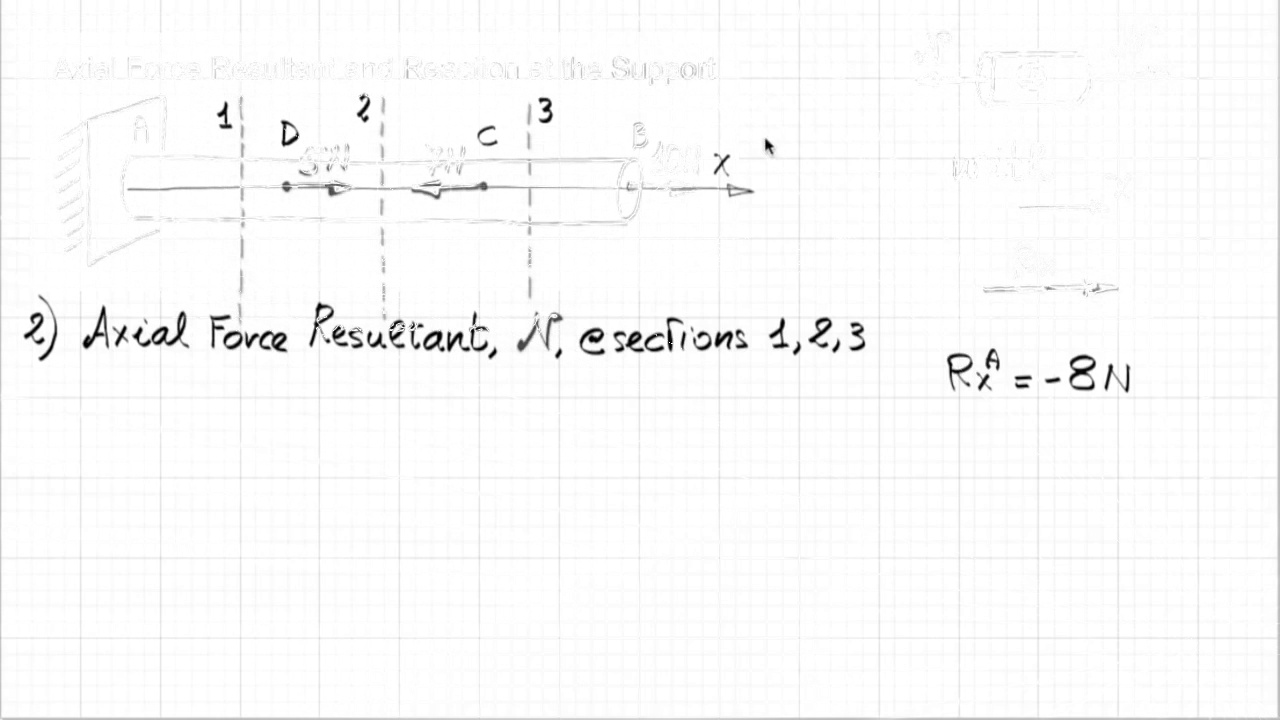 Axial Force Resultant and Reaction at the Support
1
2
3
A
D
C
B
7N
10N
X
2) Axial Force Resultant, N, @ sections 1, 2, 3
Rx^A = -8N